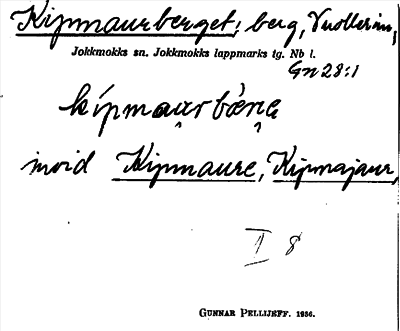 Kipmaurberget, berg, Vuollerim,
Jokkmokks sn. Jokkmokks lappmarks tg. Nb l.
Gn 28:1
invid Kipmaure, Kipmajaur,
I 8
GUNNAR PELLIJEFF. 1956.